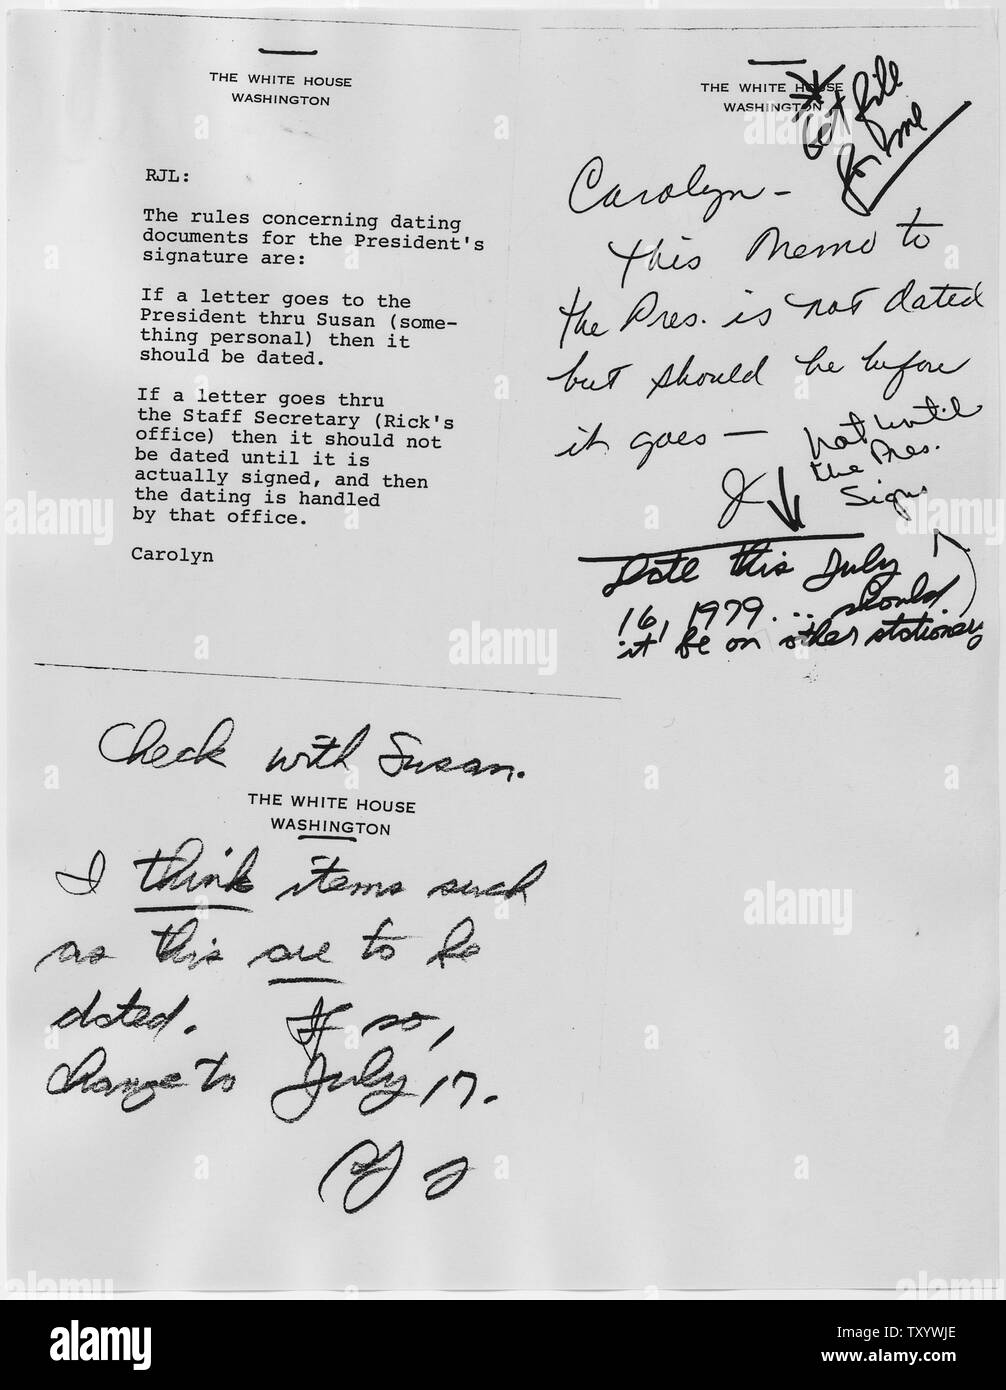 THE WHITE HOUSE
WASHINGTON
RJL:
The rules concerning dating
documents for the President's
signature are:
If a letter goes to the
President thru Susan (some-
thing personal) then it
should be dated.
If a letter goes thru
the Staff Secretary (Rick's
office) then it should not
be dated until it is
actually signed, and then
the dating is handled
by that office.
Carolyn
THE WHITE HOUSE
WASHINGTON
*Get file
for me
Carolyn -
this memo to
the Pres. is not dated
but should be before
it goes -
not until
the Pres.
signs
Date this July
16, 1979... should
it be on other stationery
Check with Susan.
THE WHITE HOUSE
WASHINGTON
I think items such
as this are to be
dated. If so,
change to July 17.
alamy
Image ID: TXYWJE
www.alamy.com